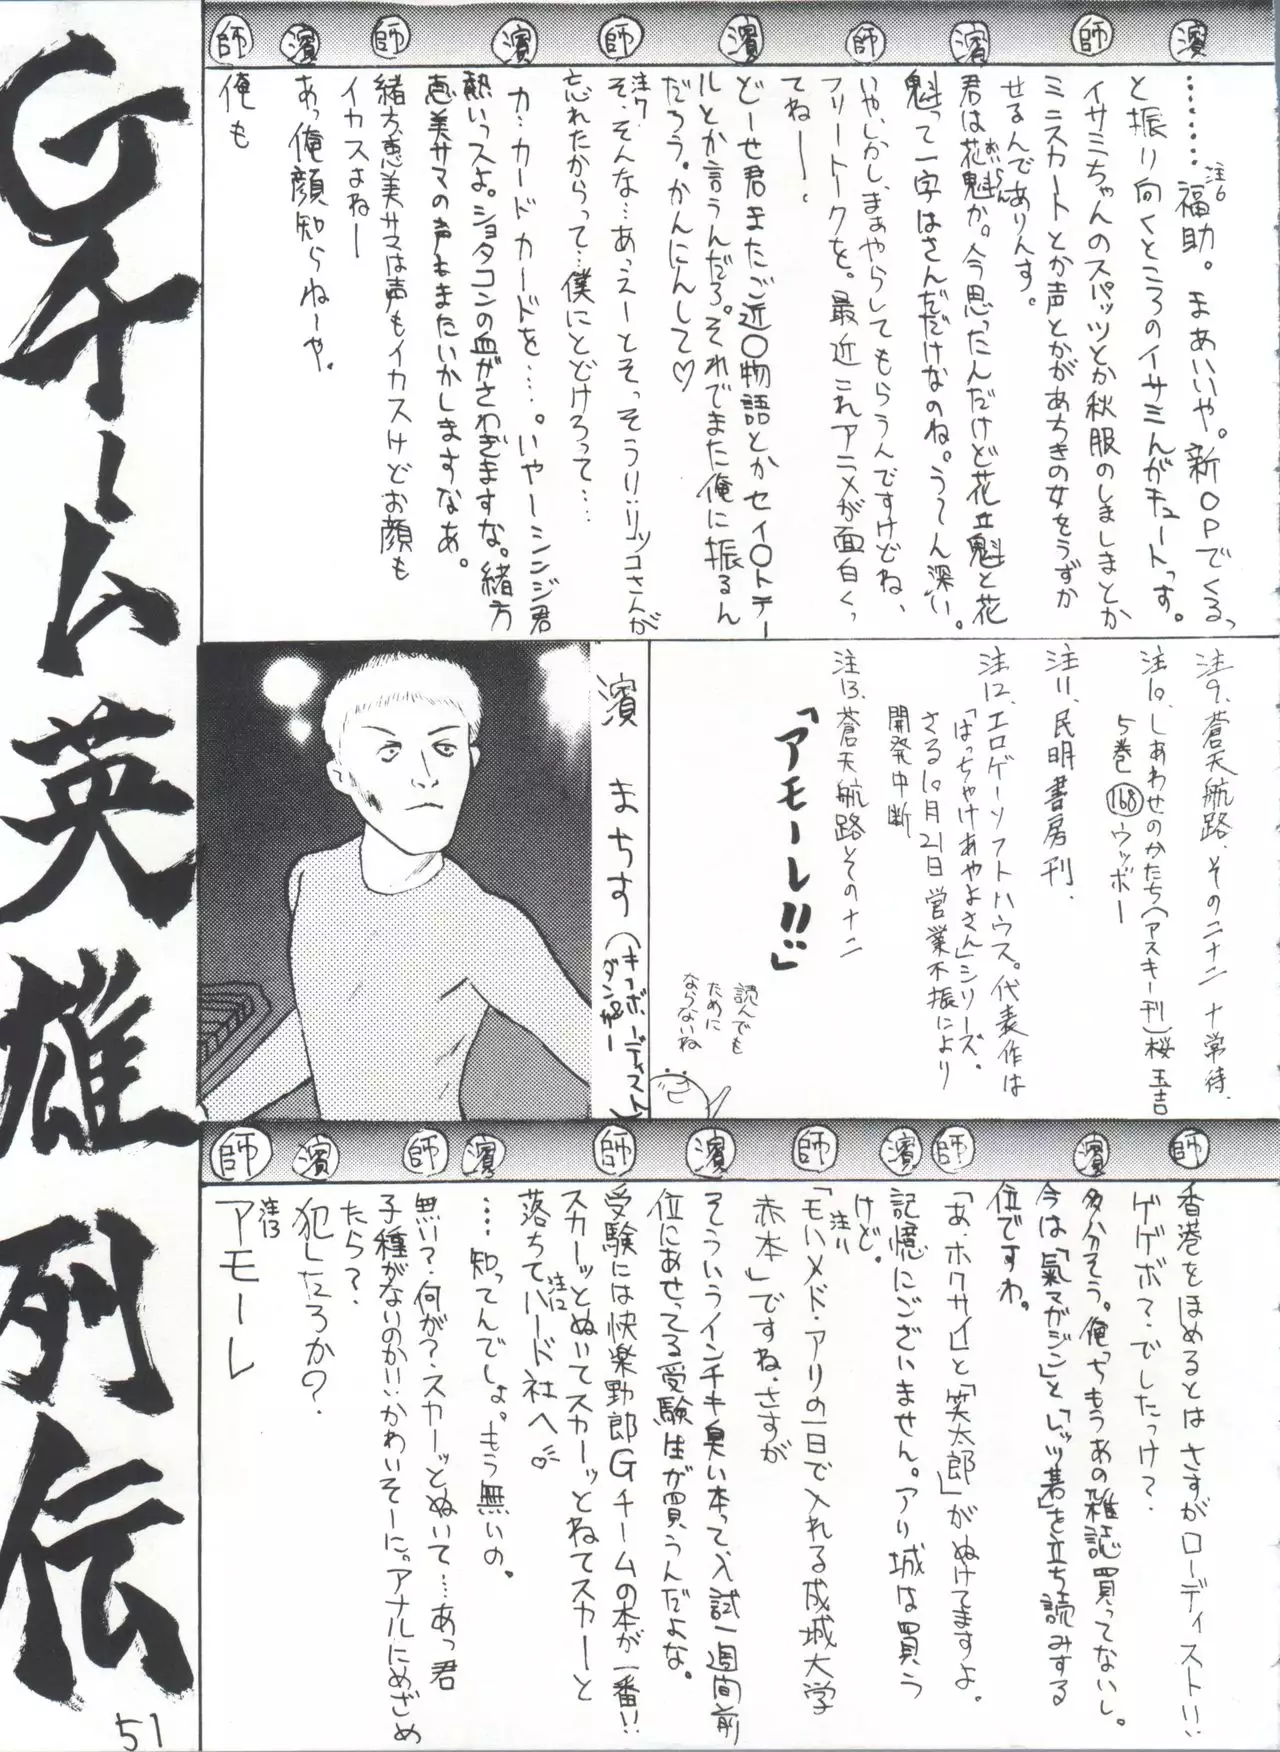 Gチーム英雄列伝
濱
……注6福助。まあいいや。新OPでくるっ
と振り向くところのイサミんがキュートっす。
師
イサミちゃんのスパッツとか秋服のしましまとか
ミニスカートとか声とかがあちきの女をうずか
せるんでありんす。
濱
君は花魁か。今思ったんだけど花立魁と花
おいらん
魁って一字はさんだだけなのね。うーん深い。
師
いや、しかし、まぁやらしてもらうんですけどね、
フリートークを。最近これアニメが面白くっ
てねー。
濱
どーせ君またご近〇物語とかセイ〇トテー
ルとか言うんだろ。それでまた俺に振るん
だろう。かんにんして♡
師
注7そ、そんな…あっえーとそっそうリ…リツコさんが
忘れたからって…僕にとどけろって…
濱
カ…カードカードを……。いやーシンジ君
熱いっスよ。ショタコンの血がさわぎますな。緒方
恵美サマの声もまたいかしますなあ。
師
緒方恵美サマは声もイカスけどお顔も
イカスよねー
濱
あっ俺顔知らねーや。
師
俺も
注9、蒼天航路、その二十二 十常待、
注10、しあわせのかたち（アスキー刊）桜玉吉
5巻 168 ウッボー
注11、民明書房刊、
注12、エロゲーソフトハウス。代表作は
「はっちゃけあやよさん」シリーズ、
さる10月21日営業不振により
開発中断
注13、蒼天航路その十二
「アモーレ!!」
読んでも
ために
ならないね
濱 まちす（キーボーディスト）
ダンサー
師
香港をほめるとはさすがローディスト!!
ゲゲボ？でしたっけ？
濱
多分そう。俺っちもうあの雑誌買ってないし。
今は「氣マガジン」と「レッツ碁」を立ち読みする
位ですわ。
師
「あ・ホクサイ」と「笑太郎」がぬけてますよ。
濱
記憶にございません。アリ城は買う
けど。
師
注11「モハメド・アリの一日で入れる成城大学
赤本」ですね、さすが
濱
そういうインチキ臭い本って入試一週間前
位にあせってる受験生が買うんだよな。
師
受験には快楽野郎Gチームの本が一番!!
スカーッとぬいてスカーッとねてスカーと
落ちて注12ハード社へ♡
濱
…知ってんでしょ。もう無いの。
師
無い？何が？スカーッとぬいて…あっ君
子種がないのかい、かわいそーに。アナルにめざめ
たら？
濱
犯したろか？
師
注13アモーレ
51